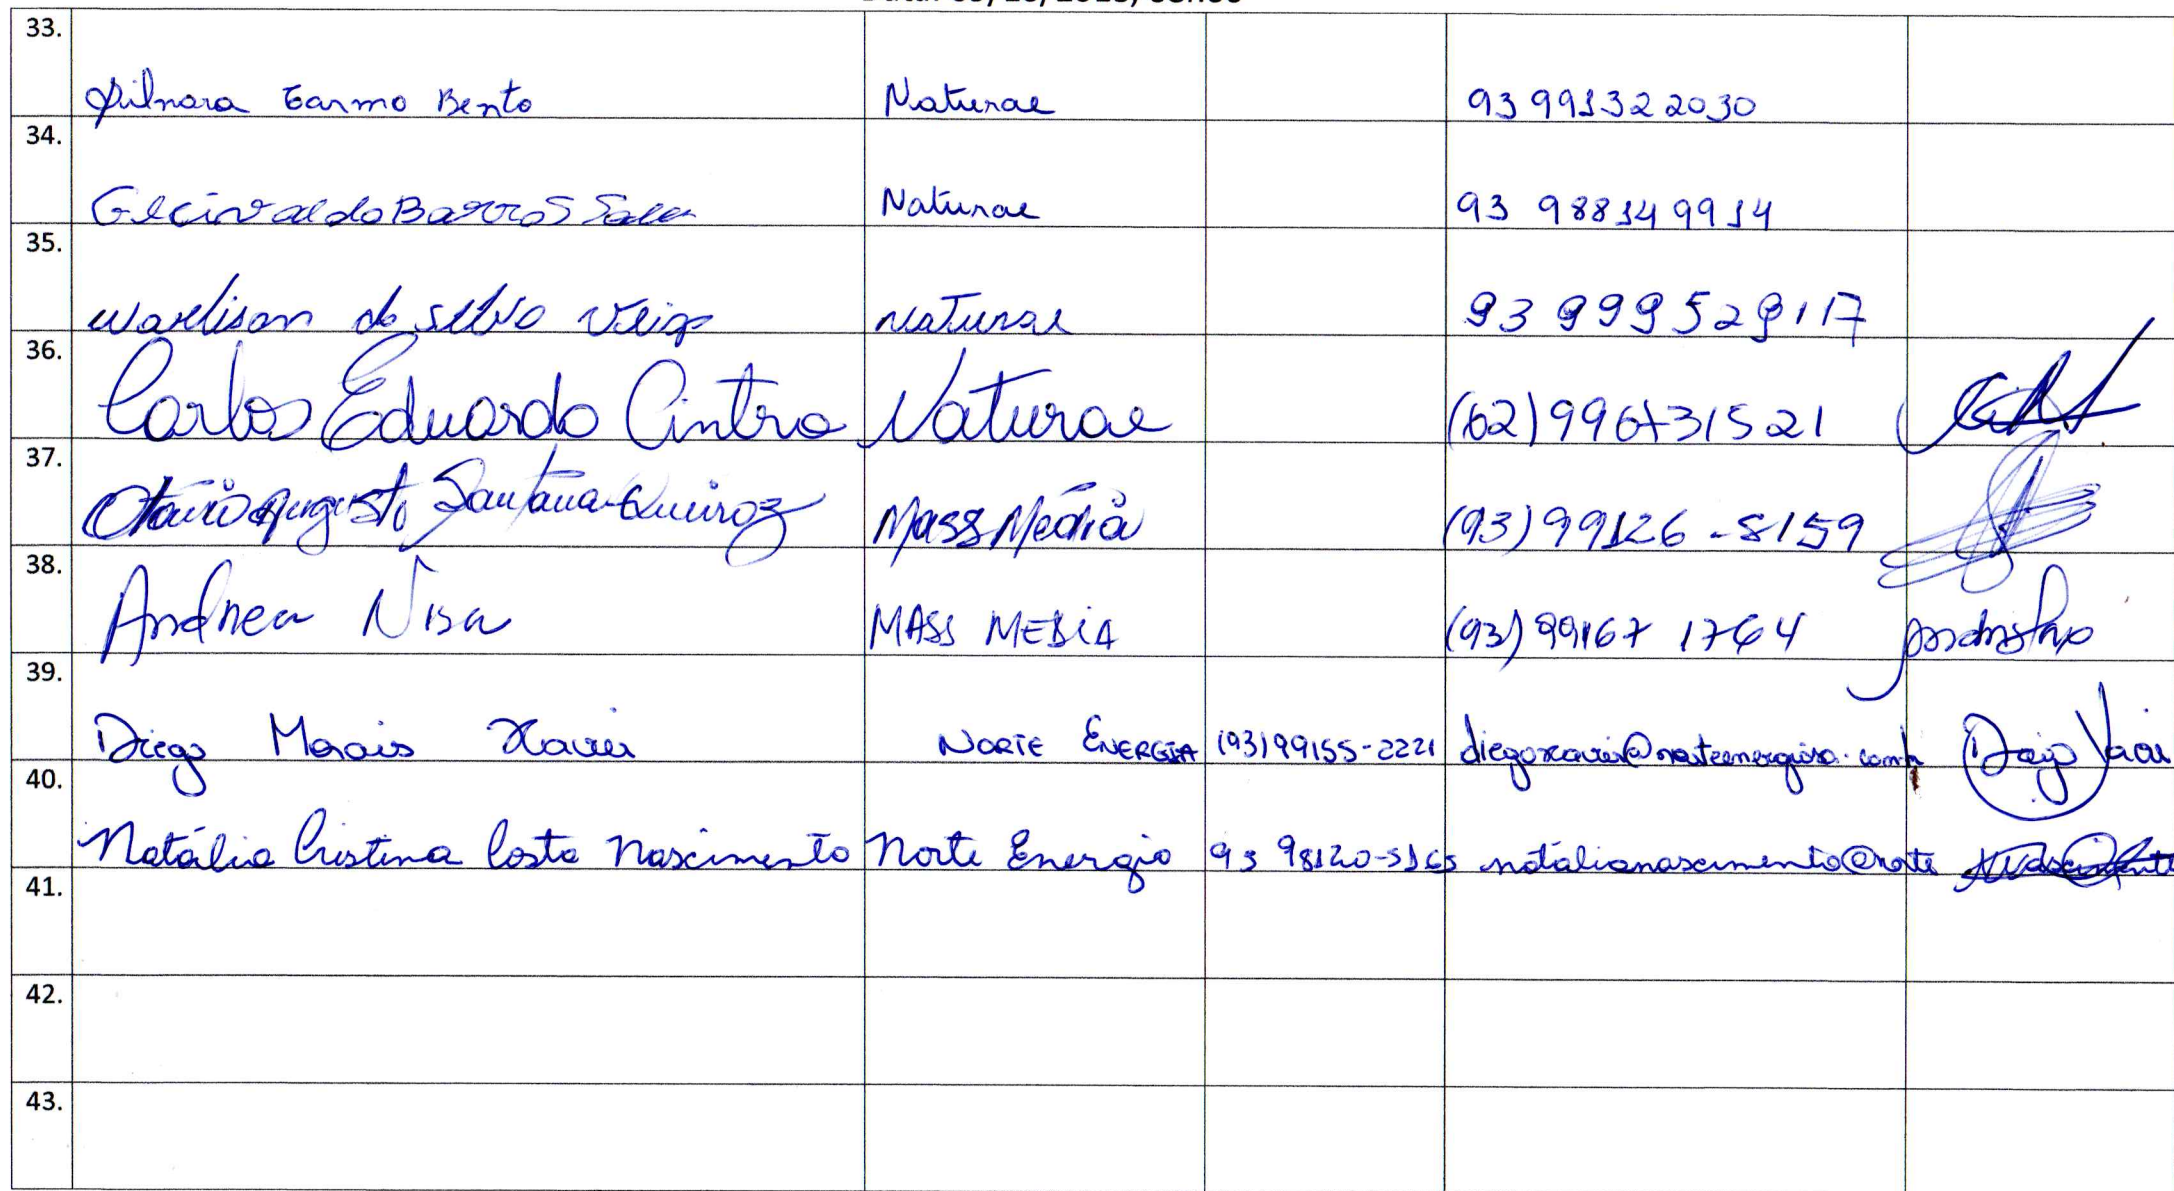 33. Gilmara Carmo Bento Naturae 93 991322030
34. Glcivaldo Barros Naturae 93 988149914
35. Warlison da Silva Veiga Naturae 93 999529117
36. Carlos Eduardo Cintra Naturae (62) 996731521
37. Otávio Augusto Santana Queiroz Mass Media (93) 99126-8159
38. Andrea Nisa MASS MEDIA (93) 99167 1764
39. Diego Morais Xavier NORTE ENERGIA (93) 99155-2221 Diego Xavier
40. Natália Cristina Costa Nascimento Norte Energia 93 98120-5165 natalianascimento@norte
41.
42.
43.